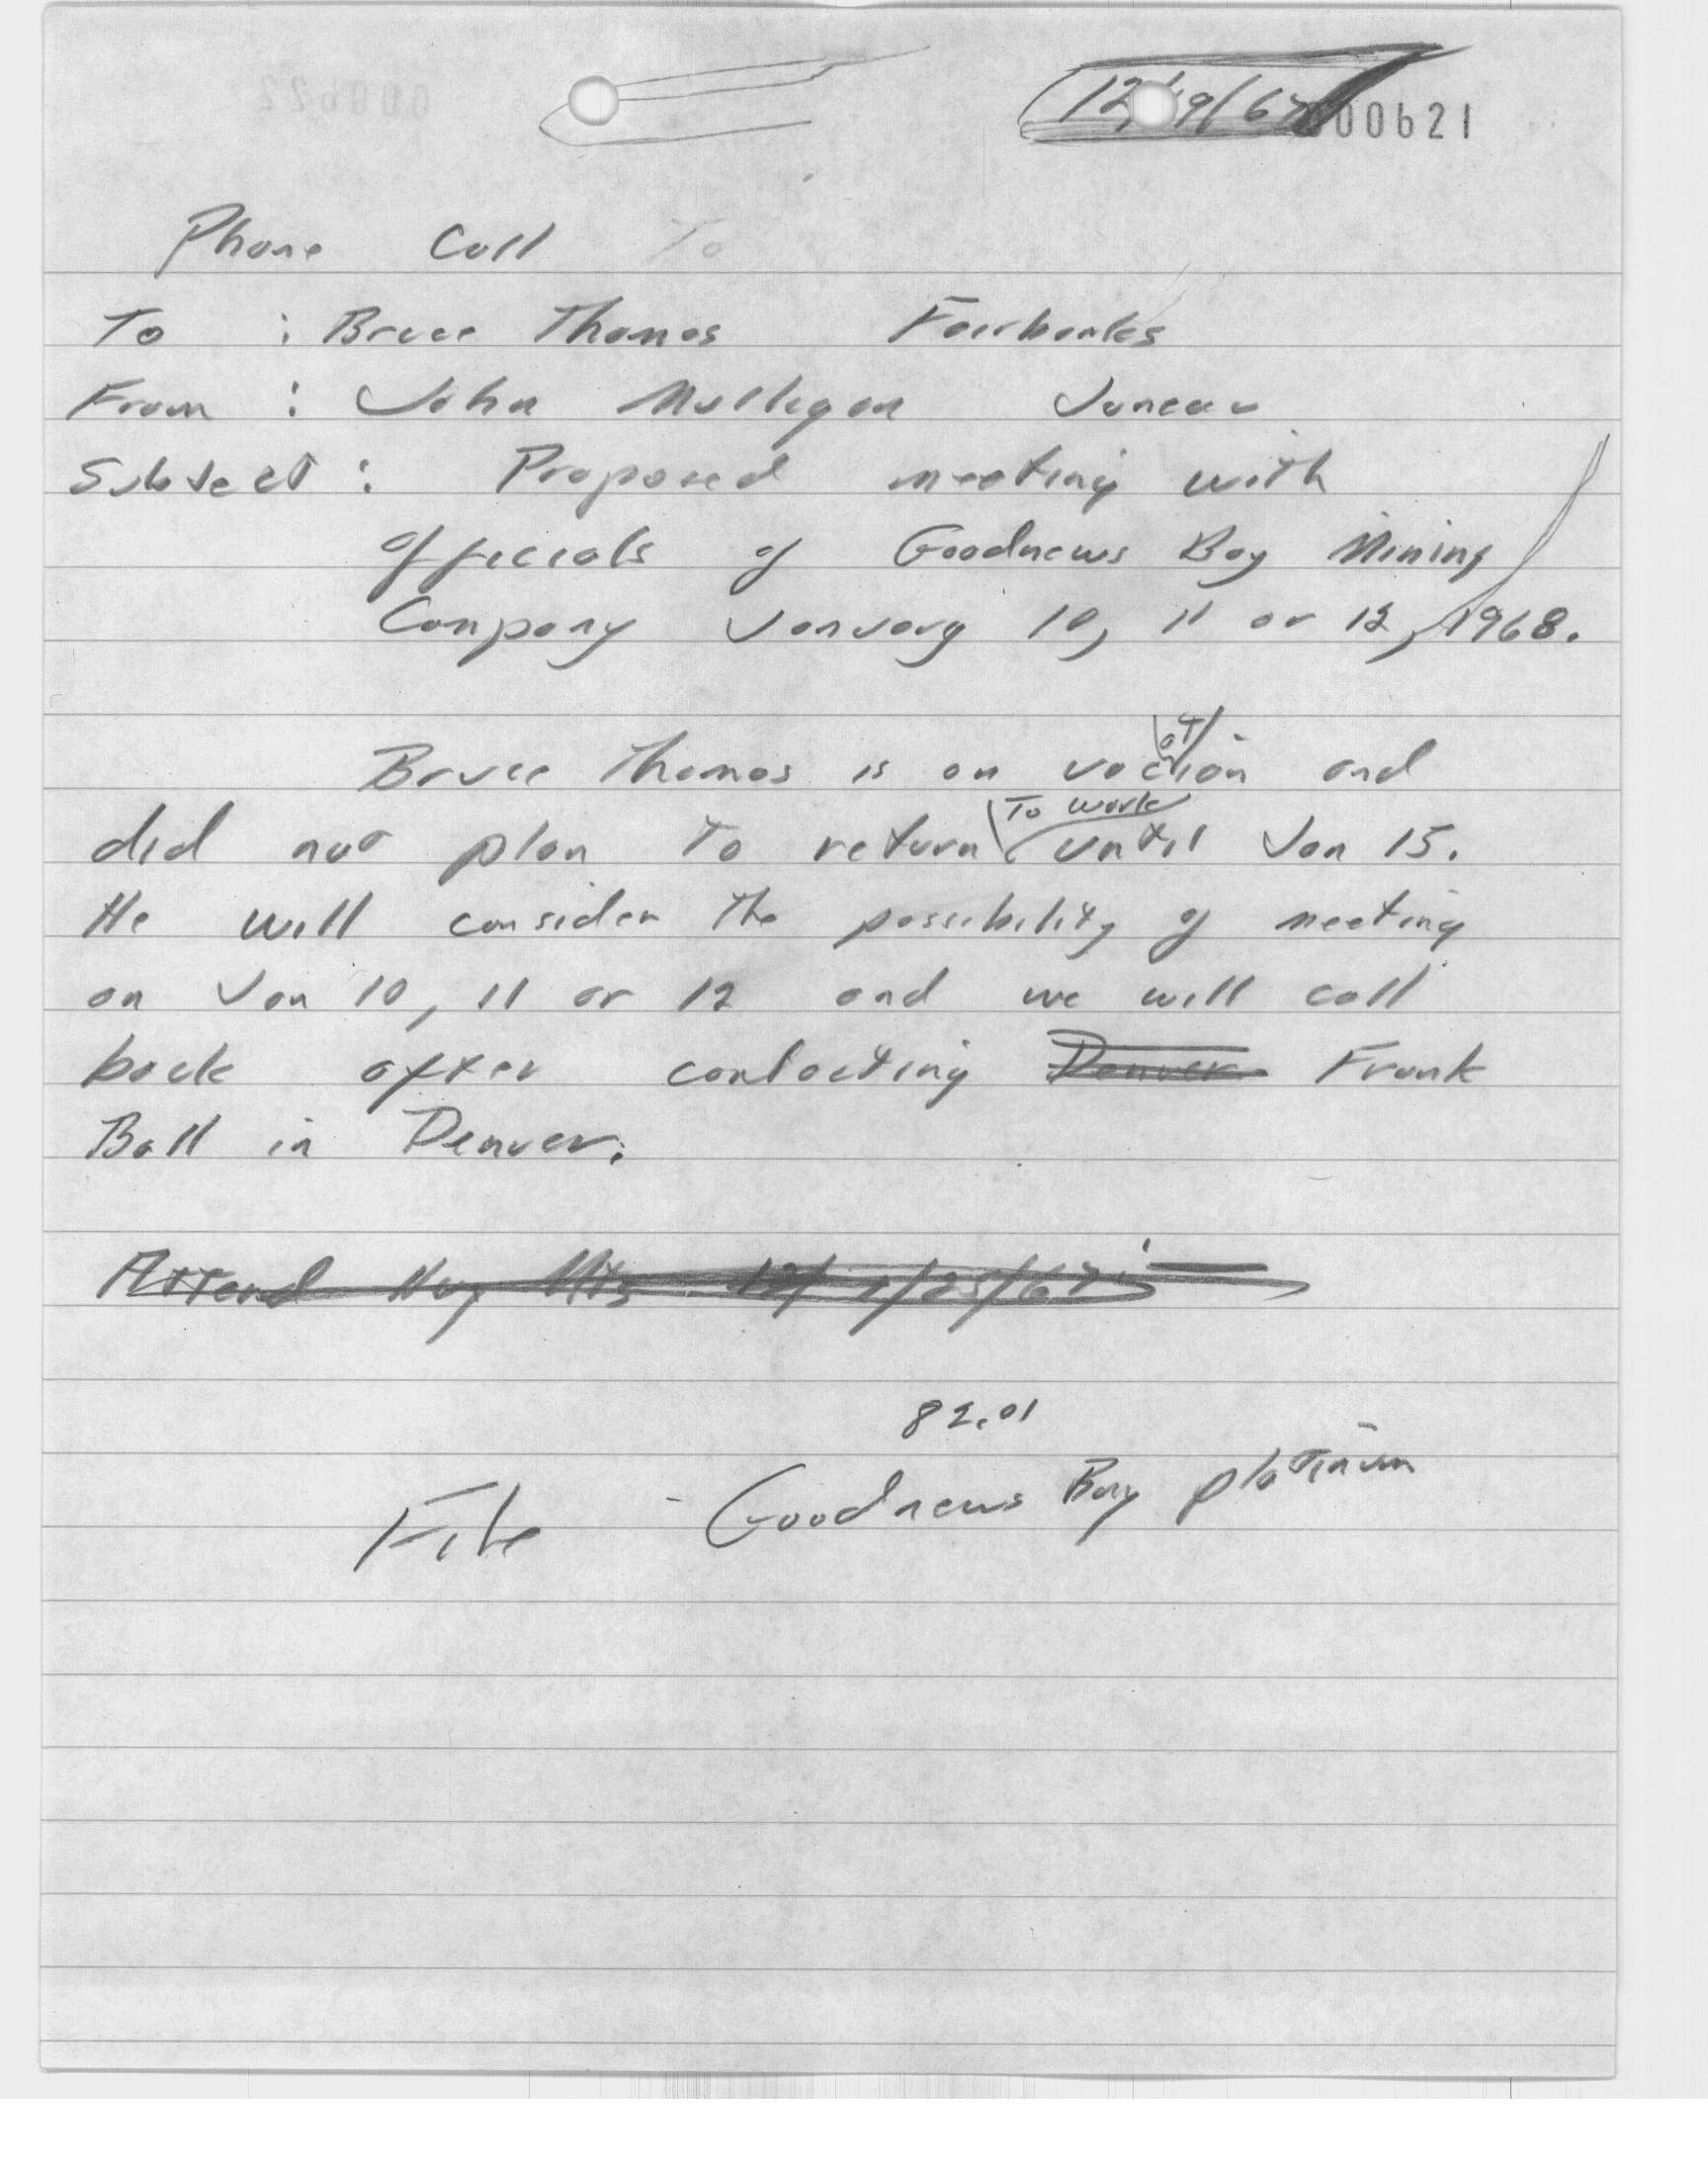 12/19/67 000621
Phone Call To
To : Bruce Thomas Fairbanks
From : John Mulligan Juneau
Subject : Proposed meeting with
officials of Goodnews Bay Mining
Company January 10, 11 or 12, 1968.
Bruce Thomas is on vacation and
did not plan to return to work until Jan 15.
He will consider the possibility of meeting
on Jan 10, 11 or 12 and we will call
back after contacting Denver Frank
Ball in Denver.
Attend 1/25/67
82.01
File - Goodnews Bay platinum